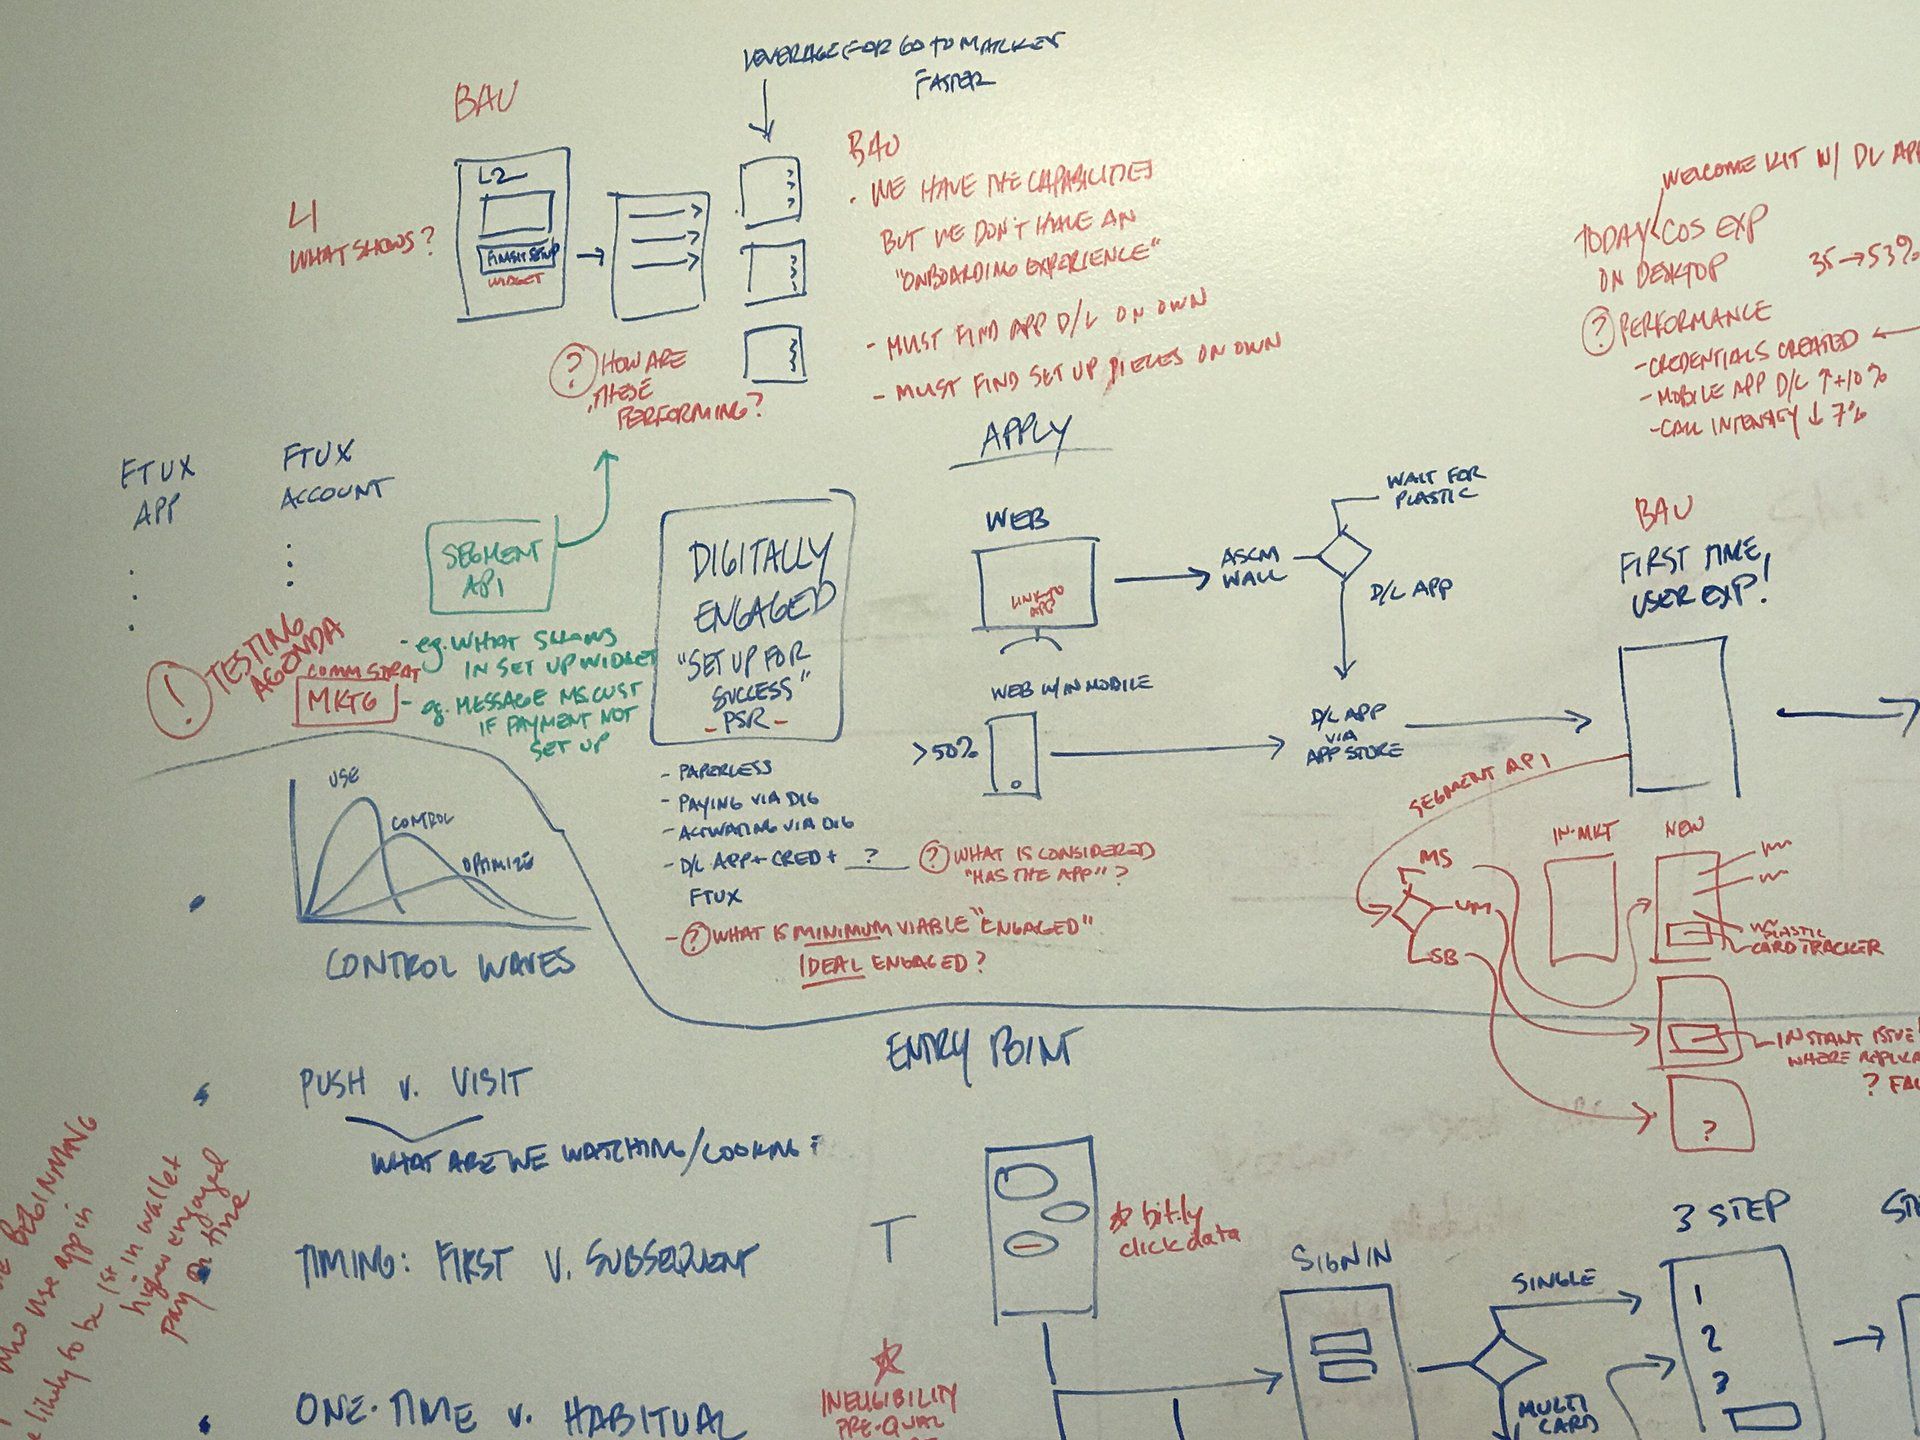 LEVERAGE FOR GO TO MARKET
FASTER
BAU
L2
FINISH SETUP
WIDGET
WHAT SHOWS?
BAU
· WE HAVE THE CAPABILITIES
BUT WE DON'T HAVE AN
"ONBOARDING EXPERIENCE"
- MUST FIND APP D/L ON OWN
- MUST FIND SET UP PIECES ON OWN
? HOW ARE
THESE
PERFORMING?
WELCOME KIT W/ DL APP
TODAY COS EXP
ON DESKTOP
35→53%
? PERFORMANCE
- CREDENTIALS CREATED ←
- MOBILE APP D/L ↑+10%
- CALL INTENSITY ↓ 7%
FTUX
APP
FTUX
ACCOUNT
SEGMENT
API
- eg. WHAT SHOWS
IN SET UP WIDGET
- eg. MESSAGE MS CUST
IF PAYMENT NOT
SET UP
! TESTING
AGENDA
COMM STRAT
MKTG
DIGITALLY
ENGAGED
"SET UP FOR
SUCCESS"
- PSR -
- PAPERLESS
- PAYING VIA DIG
- ACTIVATING VIA DIG
- D/L APP + CRED + ?
FTUX
? WHAT IS CONSIDERED
"HAS THE APP"?
- ? WHAT IS MINIMUM VIABLE "ENGAGED"
IDEAL ENGAGED?
APPLY
WEB
LINK TO
APP
WEB W/IN MOBILE
>50%
ASCM
WALL
WAIT FOR
PLASTIC
D/L APP
D/L APP
VIA
APP STORE
BAU
FIRST TIME
USER EXP!
SEGMENT API
MS
UM
SB
IN-MKT
NEW
PLASTIC
CARD TRACKER
- INSTANT ISSUE
WHERE
?
?
USE
CONTROL
OPTIMIZE
CONTROL WAVES
ENTRY POINT
PUSH v. VISIT
WHAT ARE WE WATCHING/LOOKING?
TIMING: FIRST v. SUBSEQUENT
ONE-TIME v. HABITUAL
BEGINNING
who use app in
likely to be 1st in wallet
higher engaged
pay on time
T
bitly
click data
INELIGIBILITY
PRE-QUAL
SIGN IN
SINGLE
MULTI
CARD
3 STEP
1
2
3